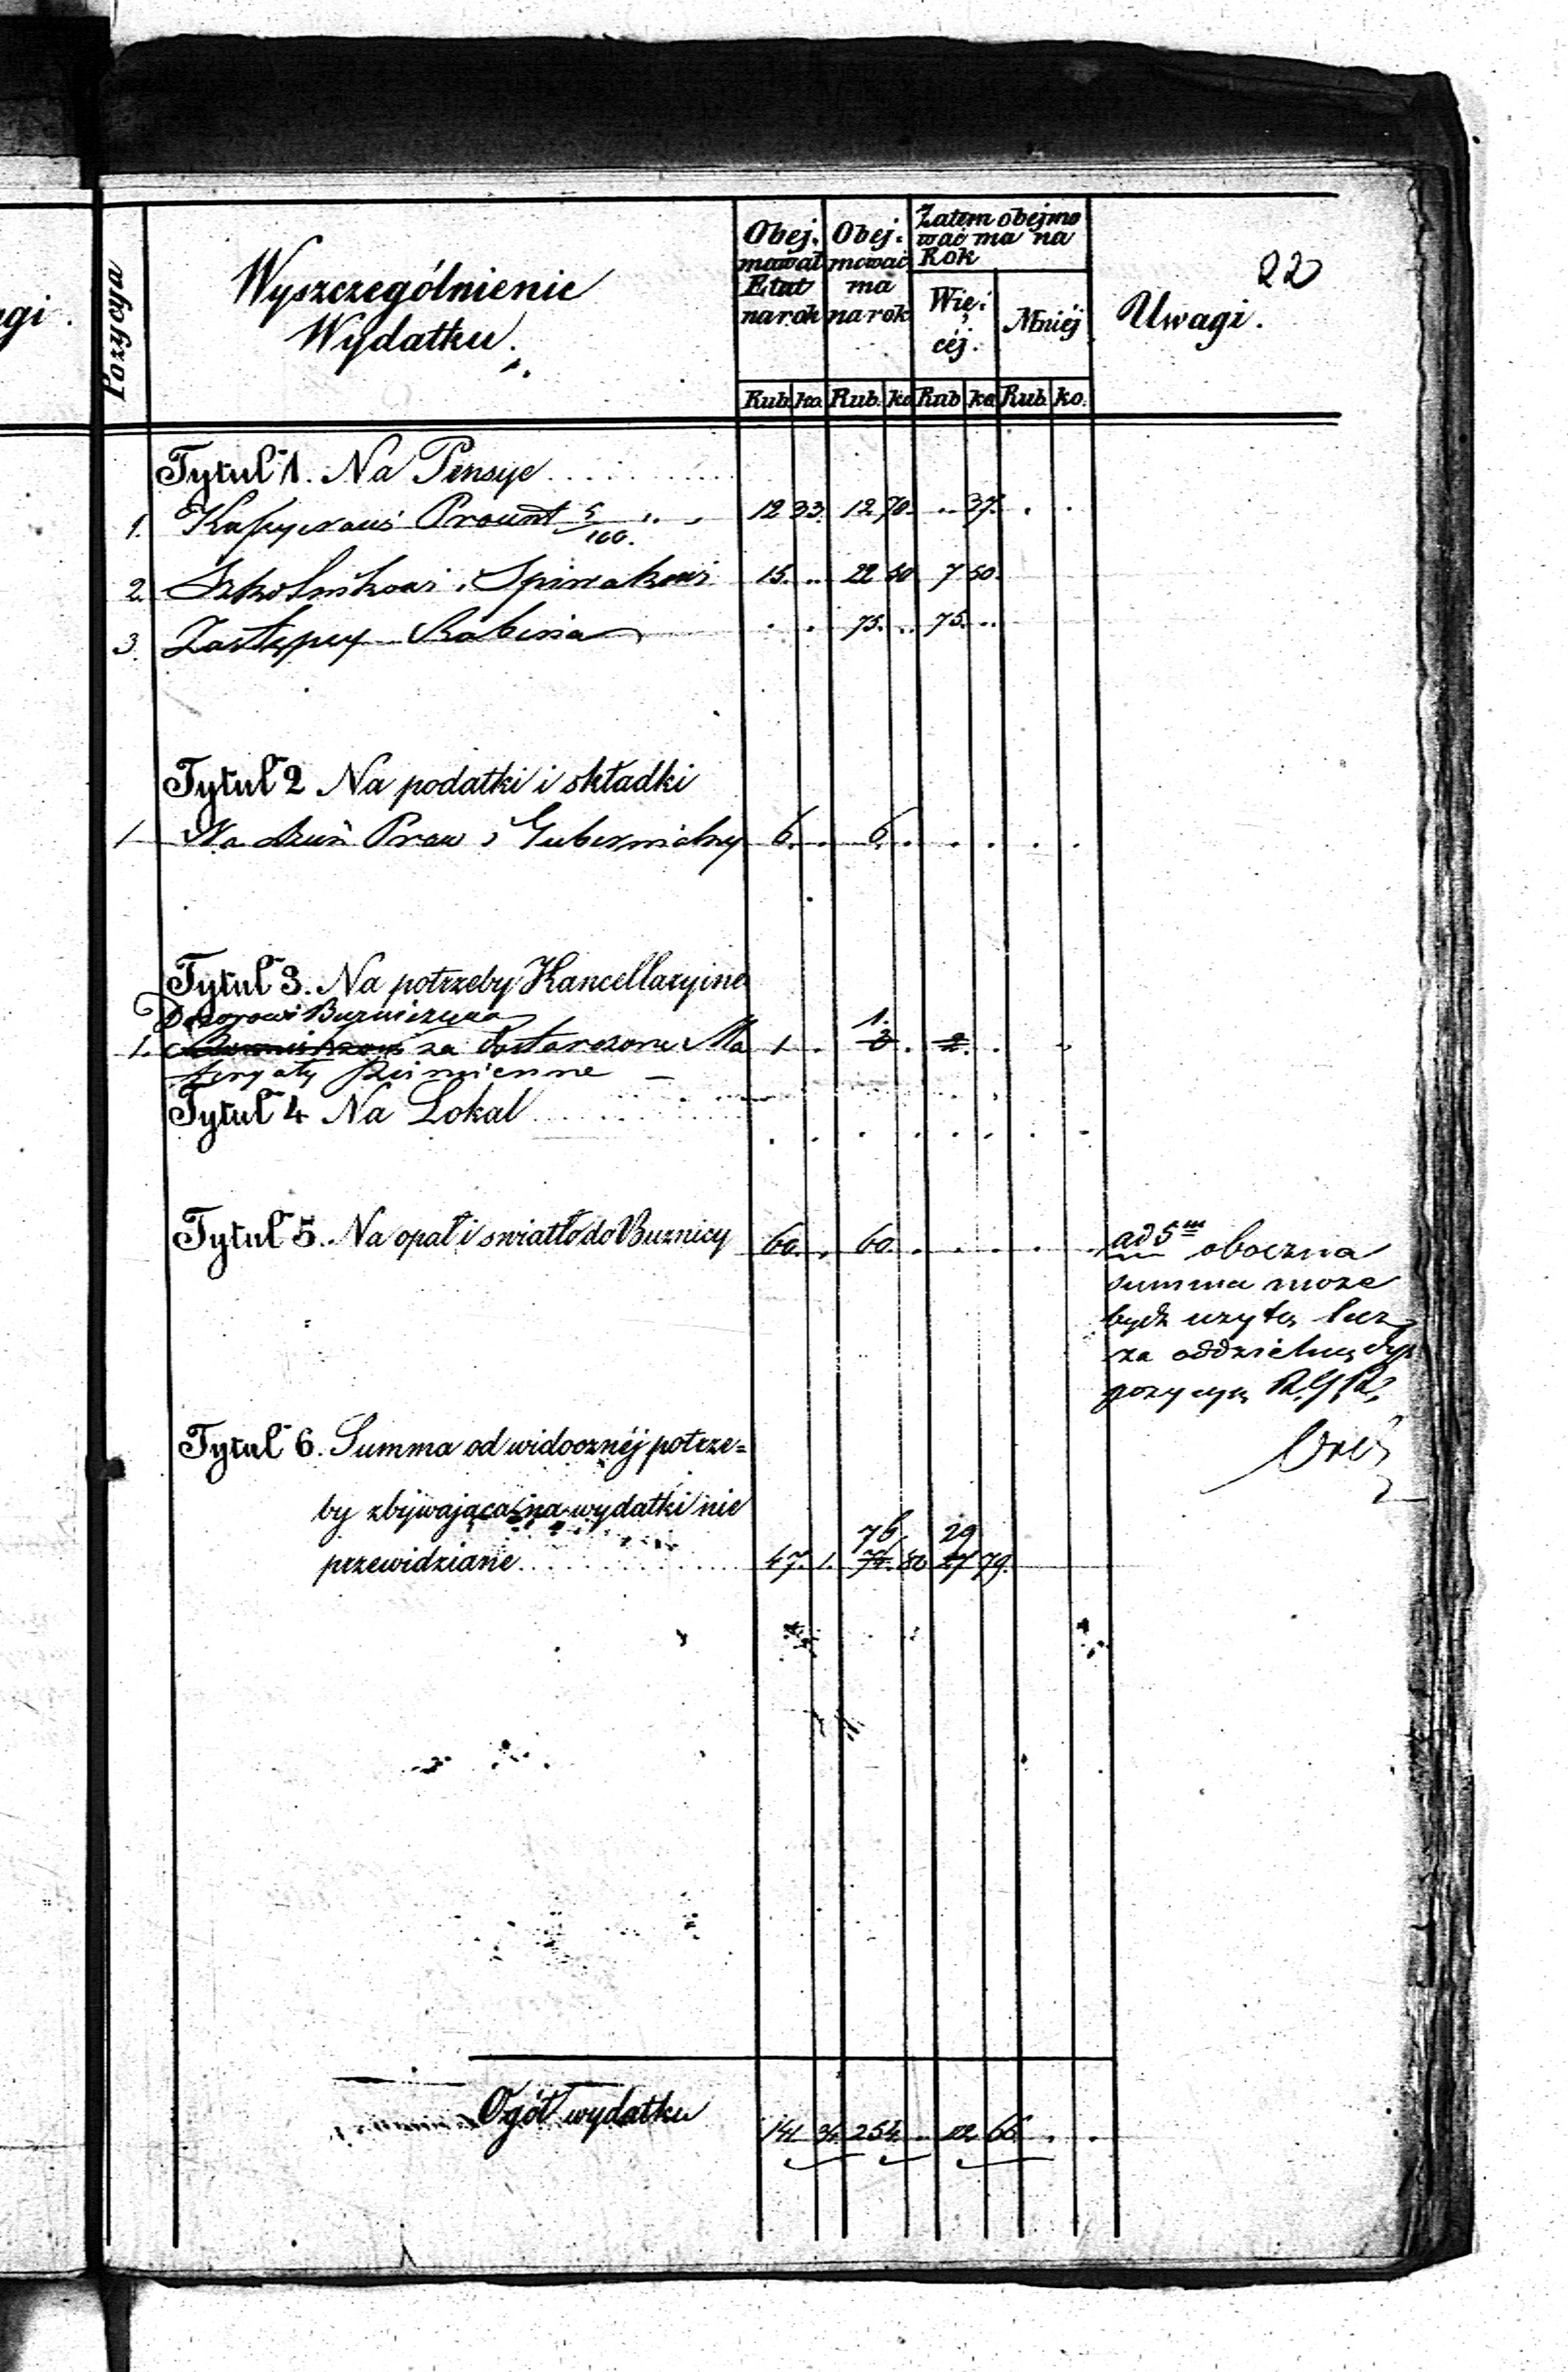 22
gi.
Pozycya
Wyszczególnienie
Wydatku.
Obej. mował Etat na rok
Obej. mować ma na rok
Zatem obejmo wać ma na Rok
Wię. céj.
Mniéj
Uwagi.
Rub. ko. Rub. ko Rub ko Rub. ko.
Tytuł 1. Na Pensye
1. Kassyerowi Procent 5/100. 12 33. 12 70. .. 37. . .
2. Szkolnikowi i Spiwakowi 15. .. 22 50 7 50.
3. Zastępcy Rabina . . 75. .. 75. ..
Tytuł 2 Na podatki i składki
1 Na Dzien: Praw i Gubernialny 6. . 6. . . . . .
Tytuł 3. Na potrzeby Kancellaryine
Dozorowi Bużniczemu 1.
1. za dostarczone Ma 1 . 3 . 2. .
teryały Pismienne
Tytuł 4 Na Lokal
Tytuł 5. Na opał i swiatło do Bużnicy 60. . 60. . . . . .
ad 5m oboczna
summa może
bydź użytą lecz
za oddzielną dys
pozycyą R.G.R.
Tytuł 6. Summa od widocznéj potrze=
by zbywająca na wydatki nie
76 29
przewidziane 47. 1. 74. 80 27 79.
Ogół wydatku 141 34. 254. .. 66 . .